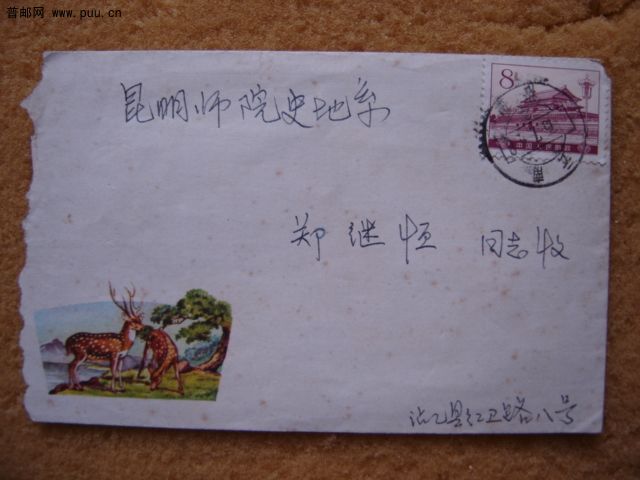 普邮网 www.puu.cn
8
中国人民邮政
昆明师院史地系
郑继恒 同志收
沾乙县红卫路八号